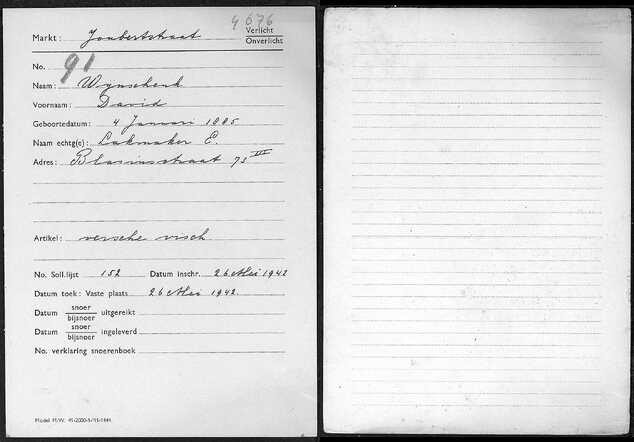 4 676
Markt: Joubertstraat
Verlicht
Onverlicht
No.
91
Naam: Wijnschenk
Voornaam: David
Geboortedatum: 4 Januari 1885
Naam echtg(e): Lakmaker E.
Adres: Blasiusstraat 73 III
Artikel: versche visch
No. Soll.lijst 152 Datum inschr. 26 Mei 1942
Datum toek: Vaste plaats 26 Mei 1942.
Datum snoer / bijsnoer uitgereikt
Datum snoer / bijsnoer ingeleverd
No. verklaring snoerenboek
Model M/W.